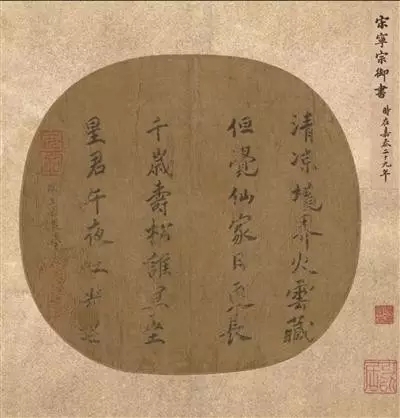 宋寧宗御書
時在嘉泰二十九年
清涼境界火雲藏
但覺仙家日更長
千歲壽松誰坐
星君午夜吐芒